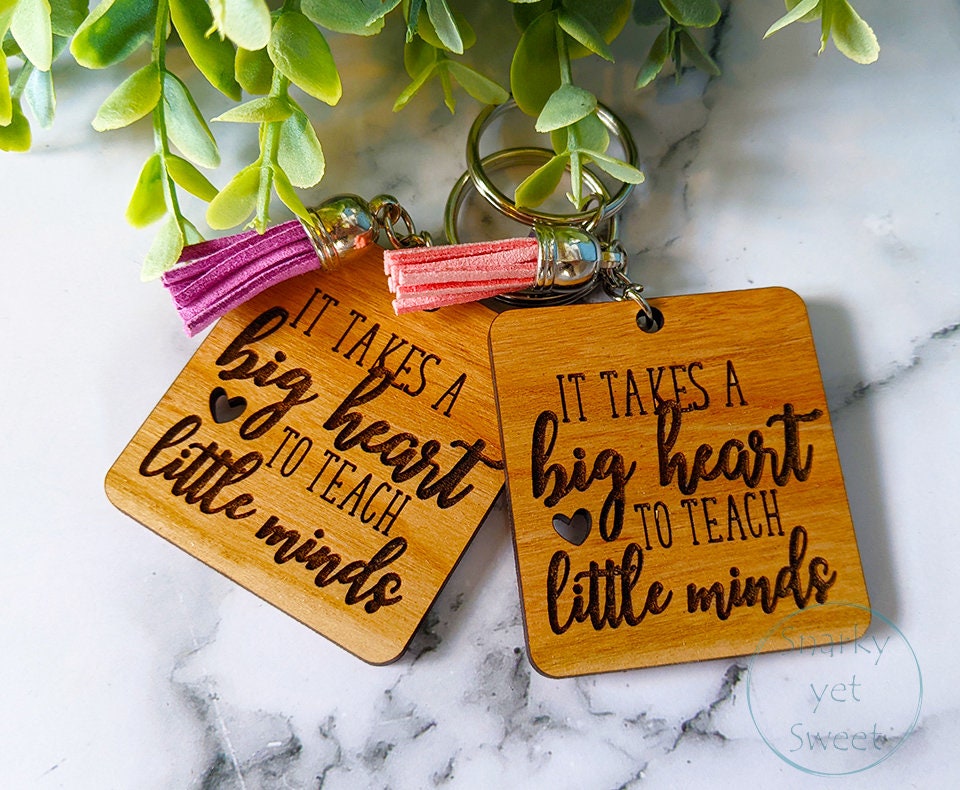 IT TAKES A
big heart
TO TEACH
little minds
IT TAKES A
big heart
TO TEACH
little minds
Snarky
yet
Sweet